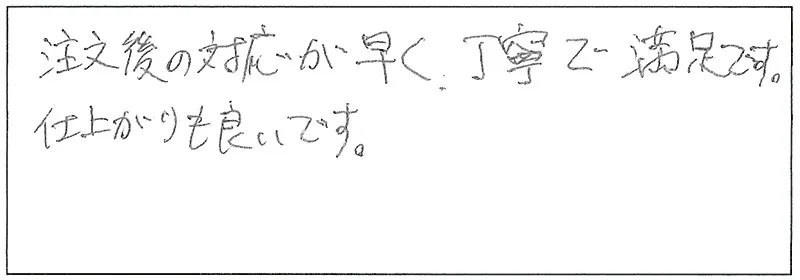 注文後の対応が早く、丁寧で満足です。
仕上がりも良いです。